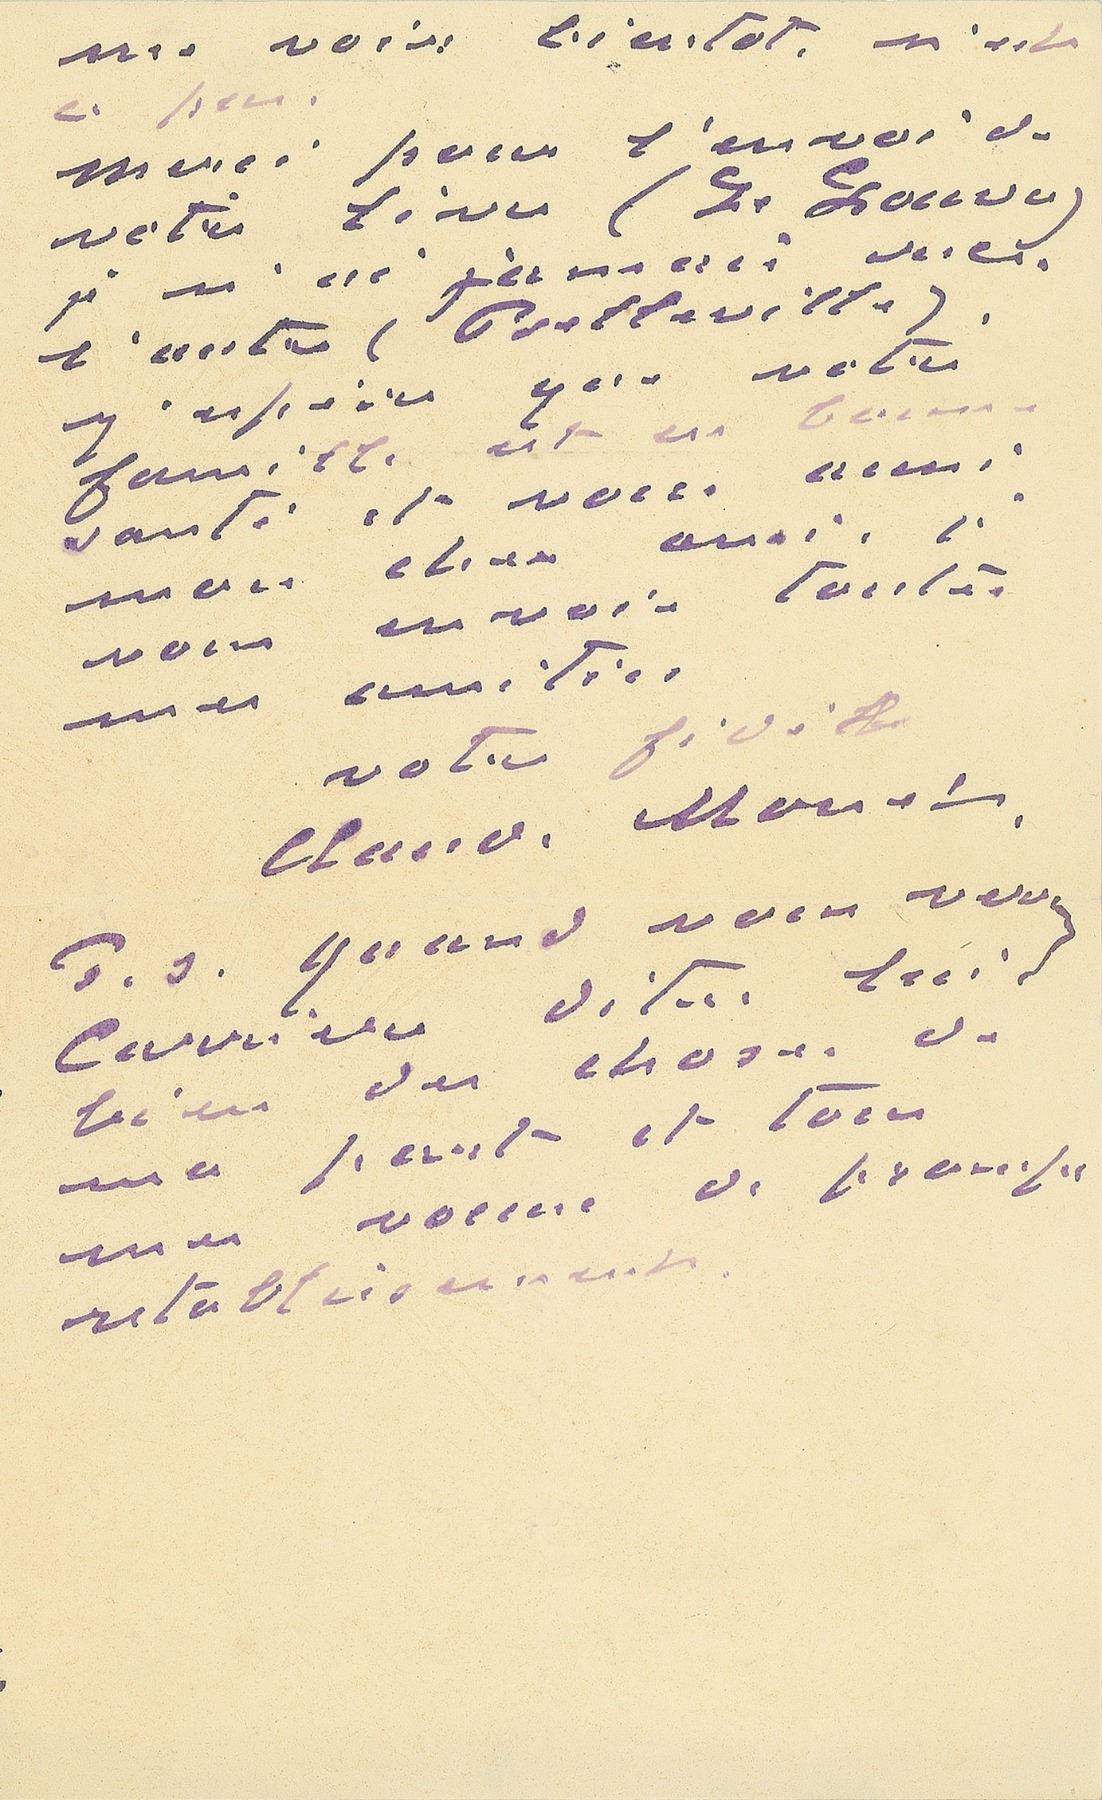 me voir bientôt, n'est
ce pas.
Merci pour l'envoi de
votre livre (Le Louvre)
je n'ai jamais reçu
l'autre ( Belleville).
J'espère que votre
famille est en bonne
santé et vous aussi,
mon cher ami, je
vous envoie toutes
mes amitiés
votre fidèle
Claude Monet.
P. S. quand vous verrez
lui
bien des choses de
ma part et tous
mes voeux de prompt
rétablissement.